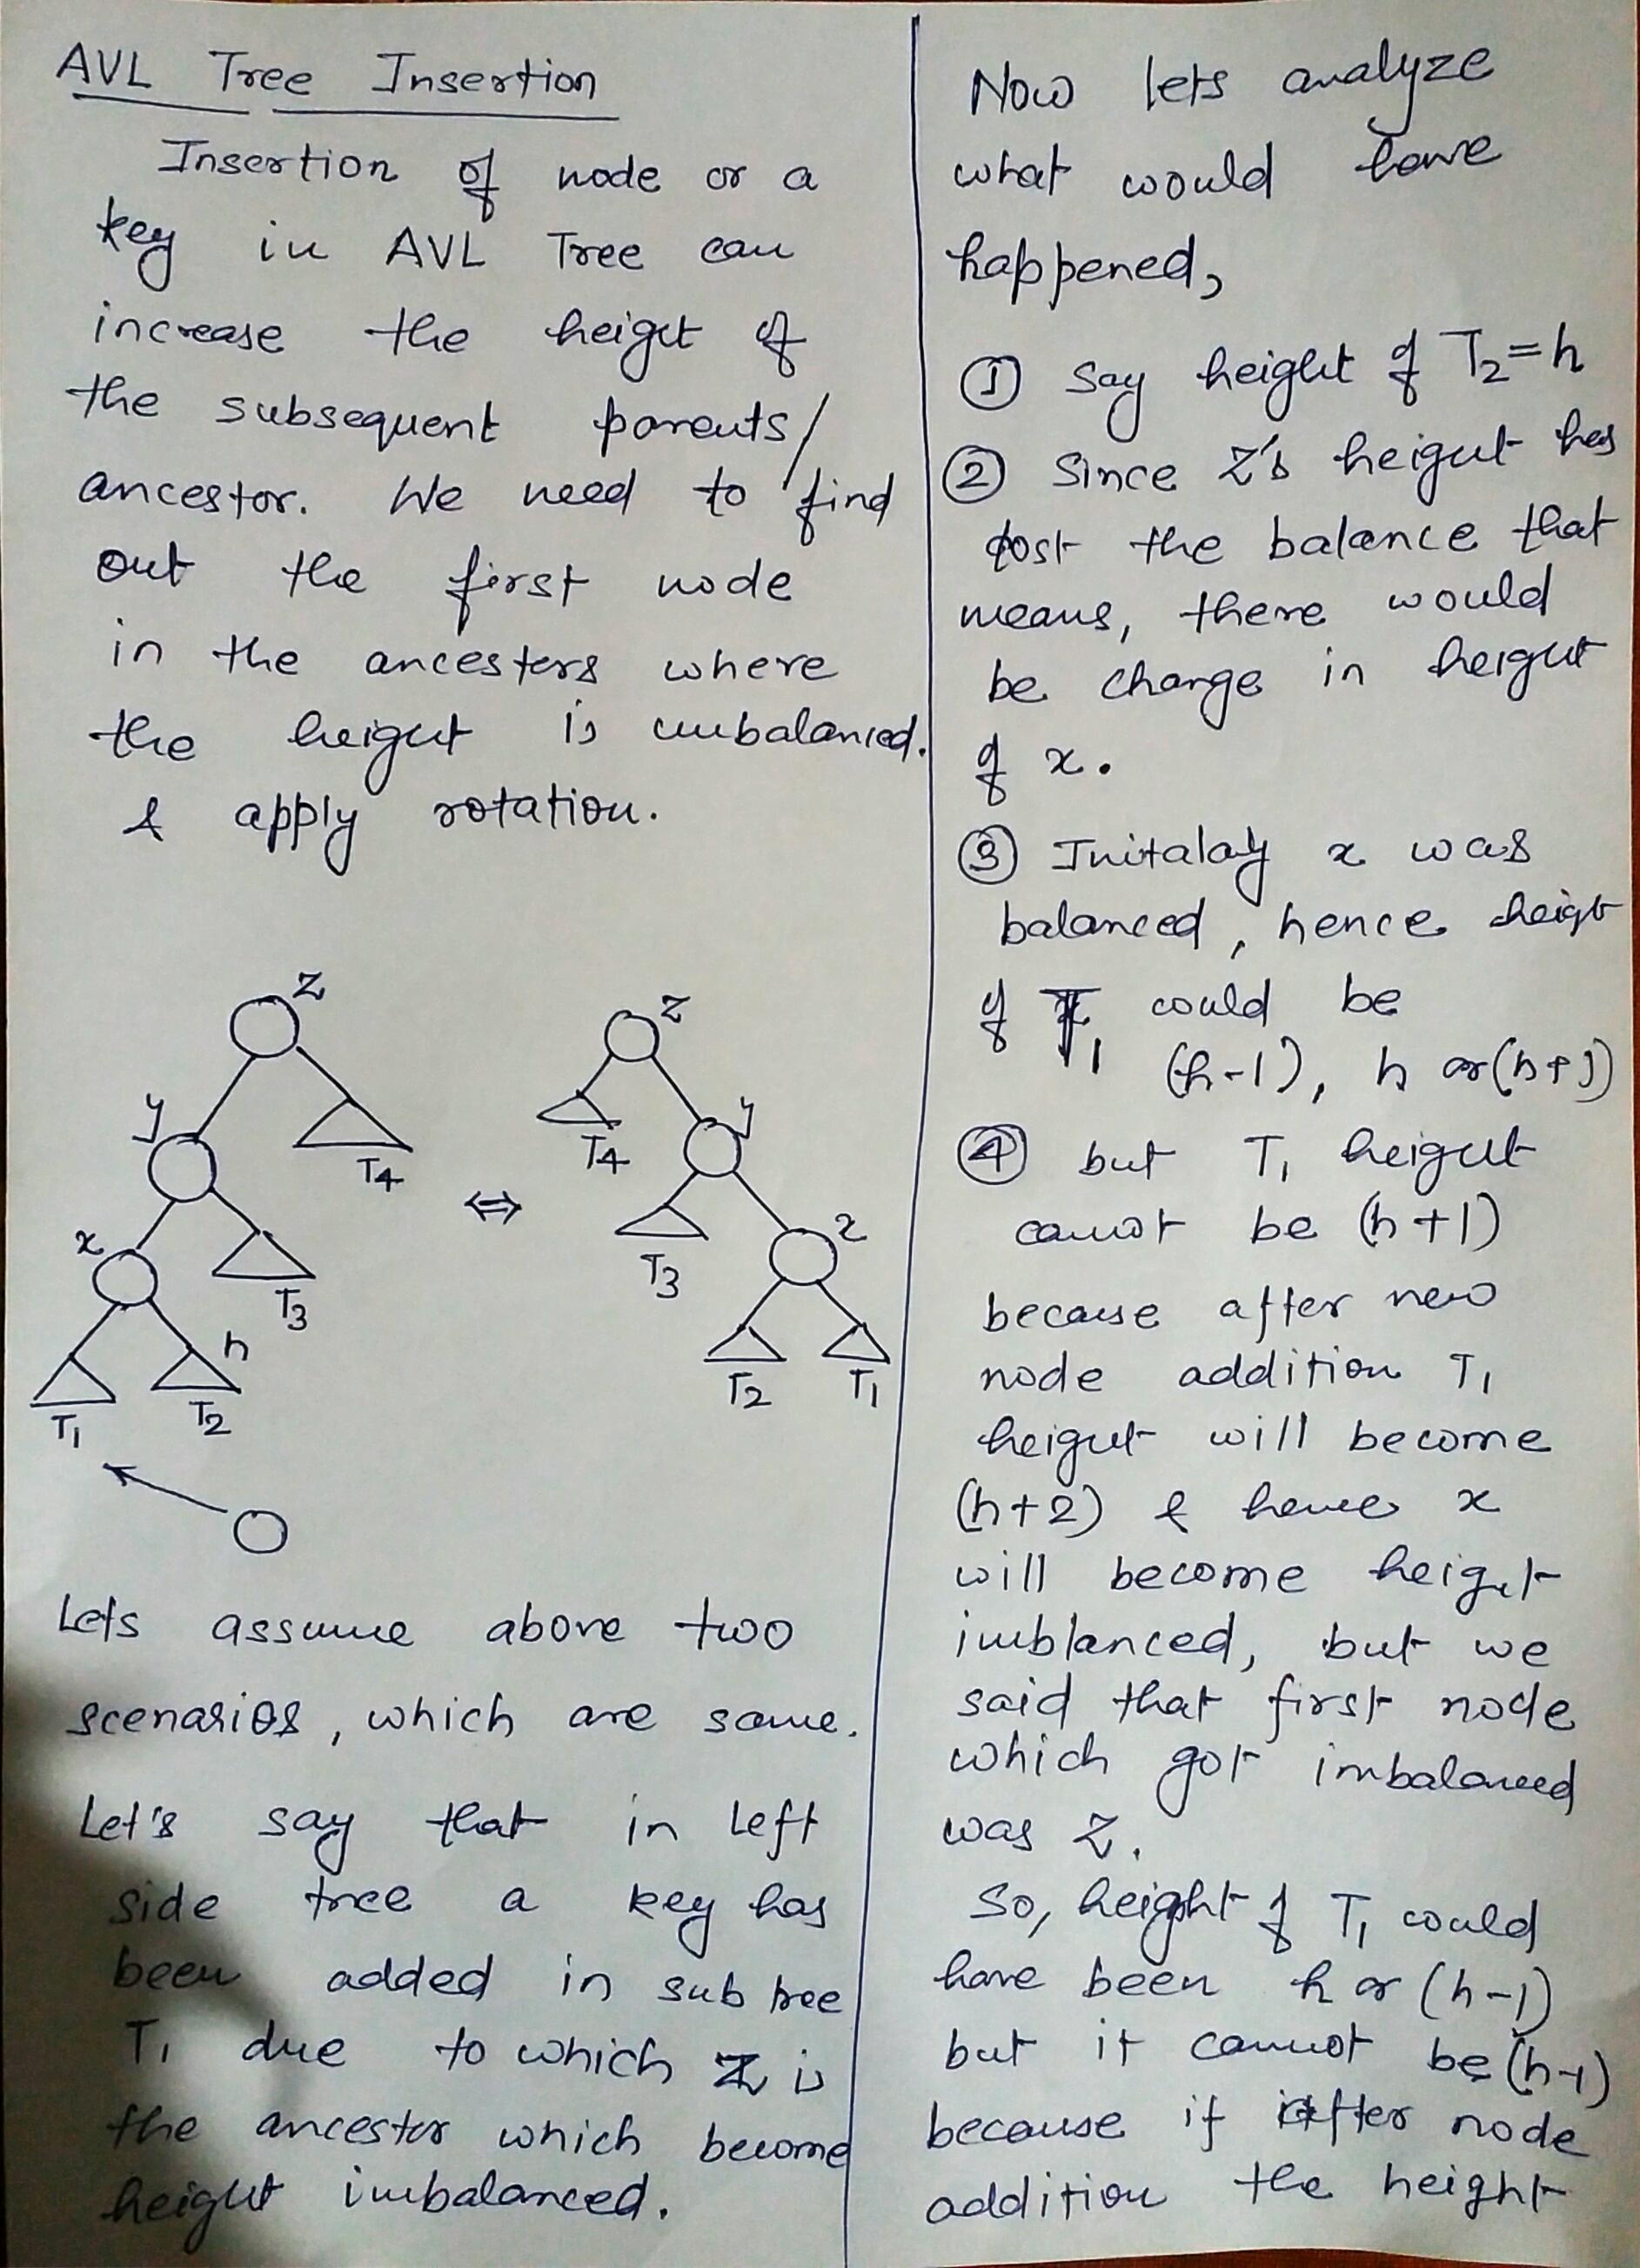 AVL Tree Insertion
Insertion of node or a
key in AVL Tree can
increase the height of
the subsequent parents/
ancestor. We need to find
out the first node
in the ancesters where
the height is unbalanced.
& apply rotation.
z
y
T4
x
T3
h
T1
T2
⇔
z
T4
y
T3
x
T2
T1
Lets assume above two
scenarios, which are same.
Let's say that in left
side tree a key has
been added in sub tree
T1 due to which Z is
the ancestor which become
height imbalanced.
Now lets analyze
what would have
happened,
① Say height of T2=h
② Since Z's height has
lost the balance that
means, there would
be change in height
of x.
③ Initalay x was
balanced, hence heigt
of T1 could be
(h-1), h or (h+1)
④ but T1 height
cannot be (h+1)
because after new
node addition T1
height will become
(h+2) & hence x
will become height
imblanced, but we
said that first node
which got imbalanced
was Z.
So, height of T1 could
have been h or (h-1)
but it cannot be (h-1)
because if after node
addition the height